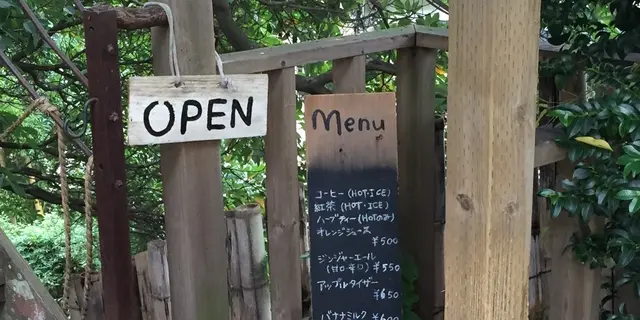 OPEN
Menu
コーヒー (HOT・ICE)
紅茶 (HOT・ICE)
ハーブティー (HOTのみ)
オレンジジュース
¥500
ジンジャーエール
(甘口・辛口) ¥550
アップルタイザー
¥650
バナナミルク ¥600